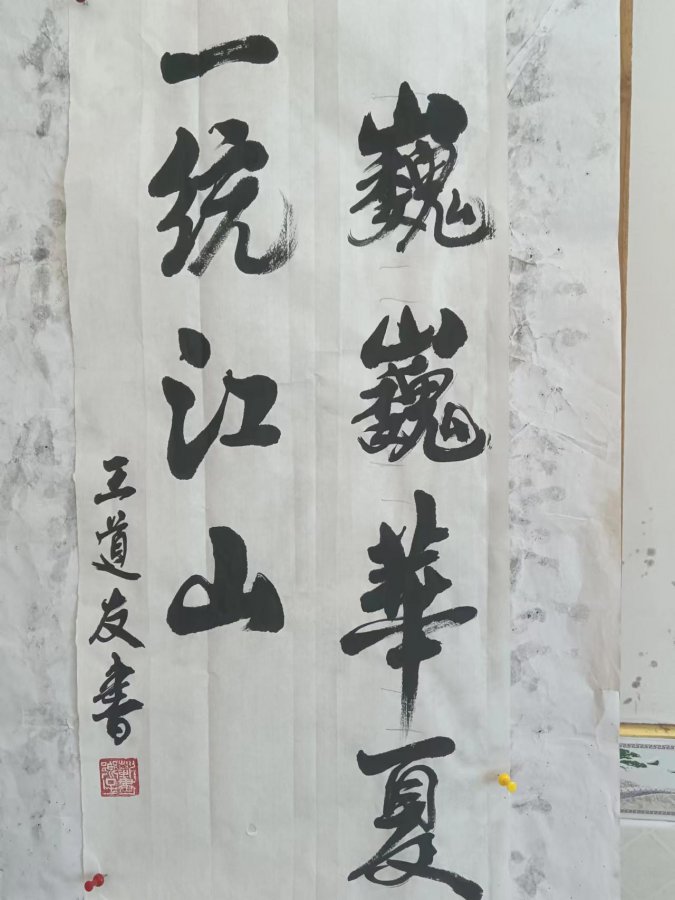 巍巍華夏
一统江山
王道友书